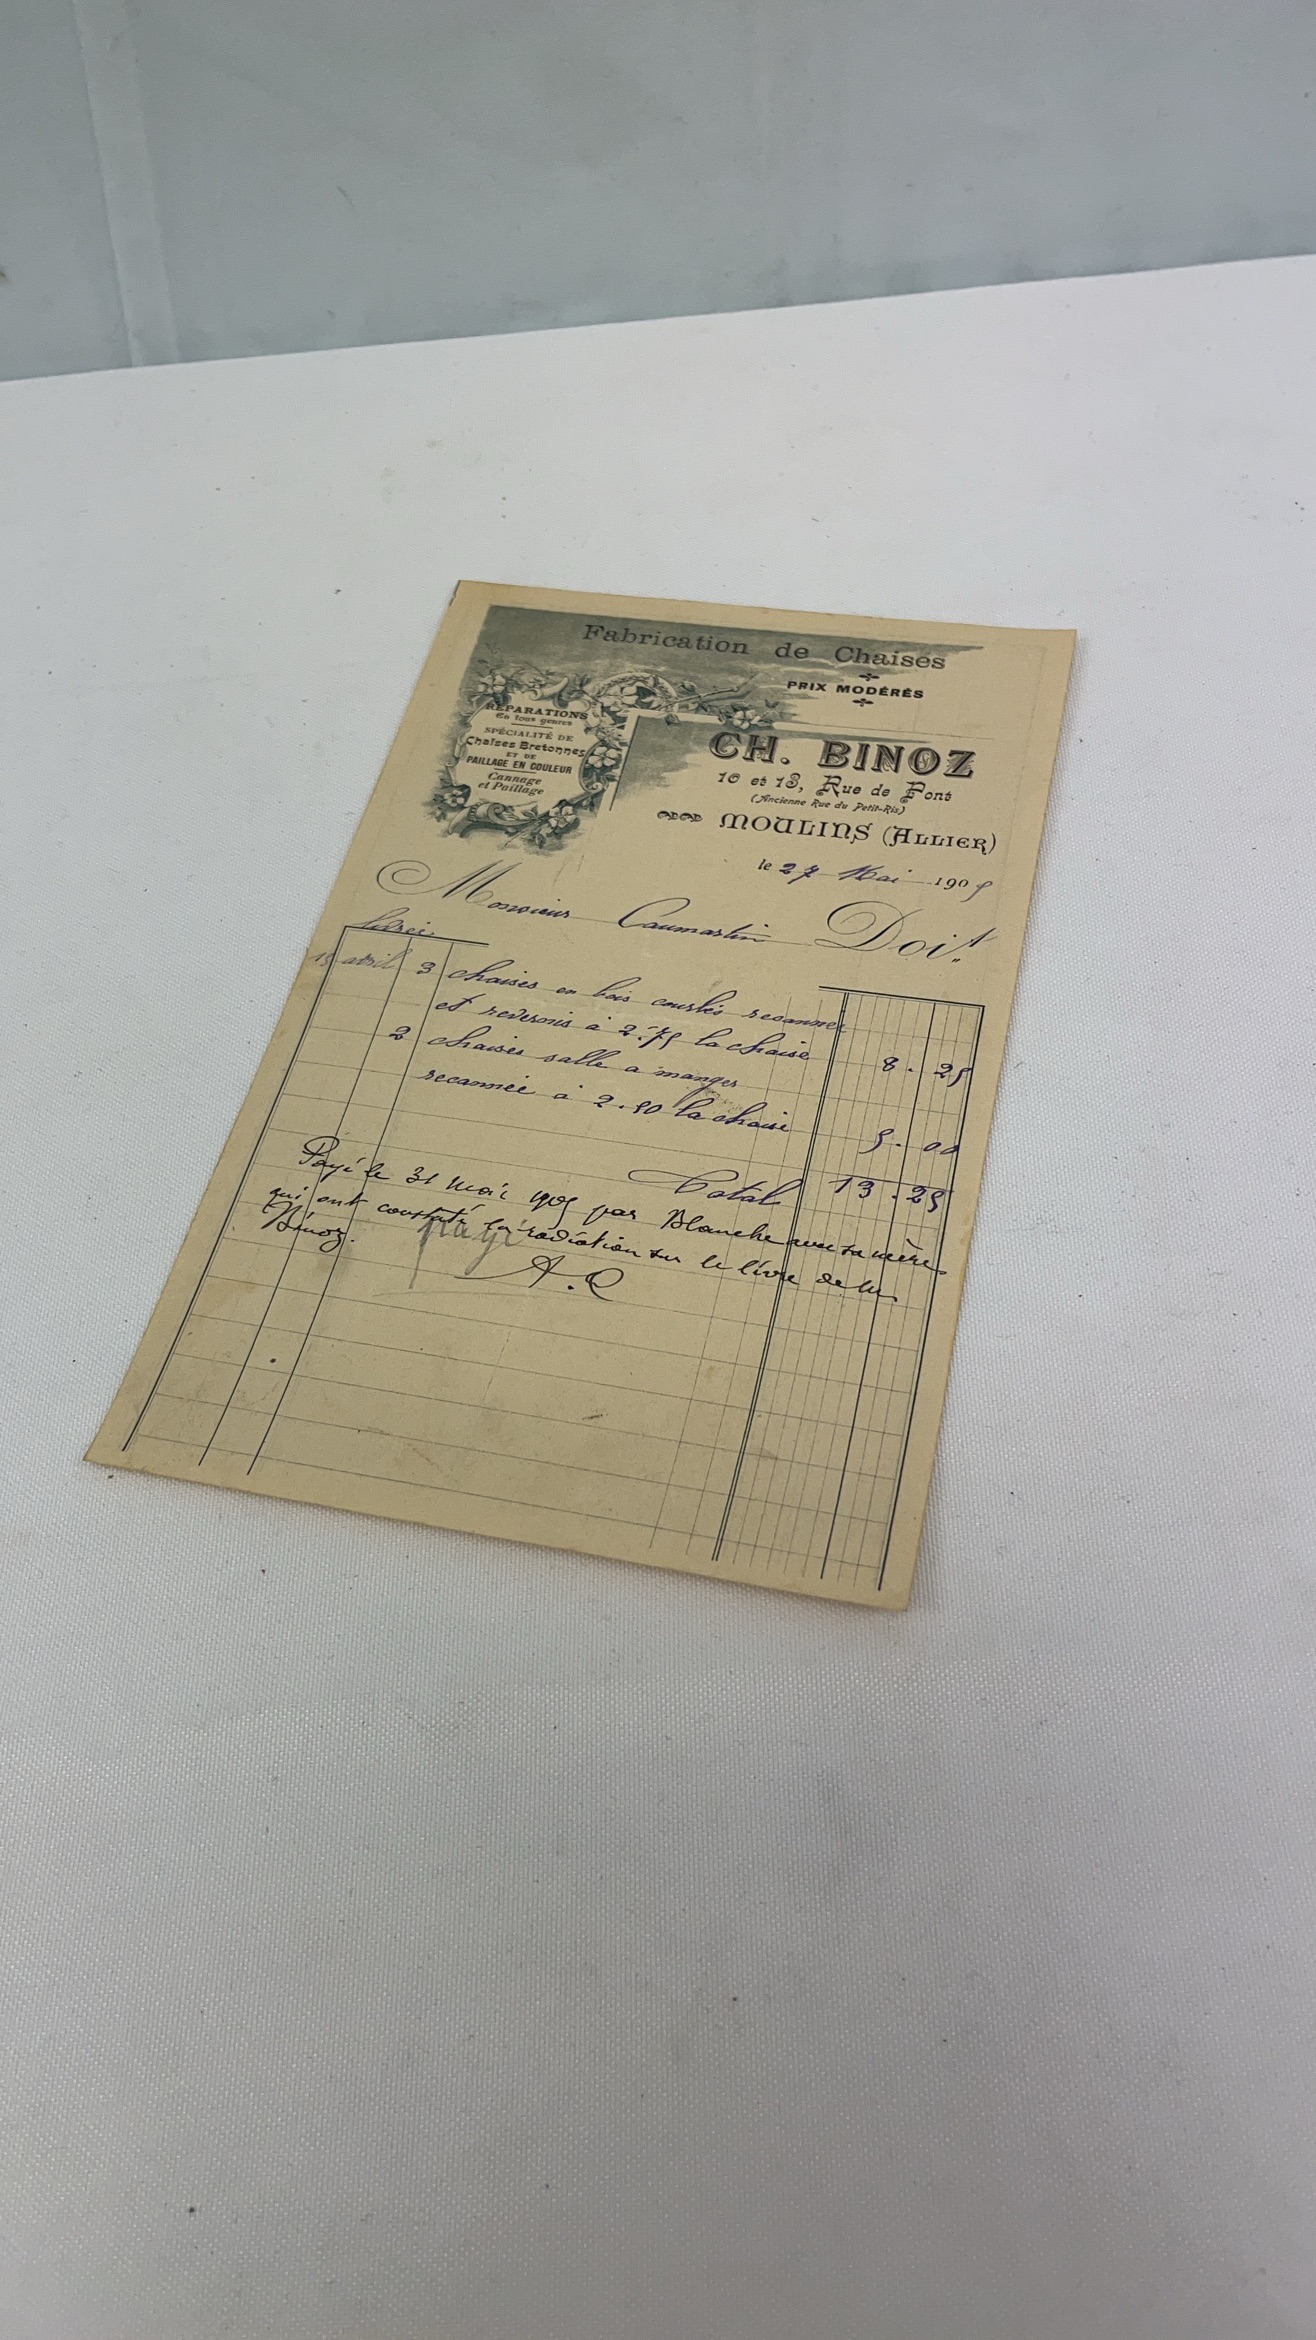 Fabrication de Chaises
PRIX MODÉRÉS
RÉPARATIONS
En tous genres
SPÉCIALITÉ DE
Chaises Bretonnes
ET DE
PAILLAGE EN COULEUR
Cannage
et Paillage
CH. BINOZ
16 et 13, Rue de Pont
(Ancienne Rue du Petit-Ris)
MOULINS (ALLIER)
le 27 Mai 1905
Monsieur Caumartin Doit
livrée
15 avril 3 chaises en bois courbés recannée
et revernis à 2.75 la chaise 8.25
2 chaises salle a manger
recannée à 2.50 la chaise 5.00
Total 13.25
Payé le 31 Mai 1905 par Blanche avec sa mère
qui ont constaté la radiation sur le livre de M.
Binoz.
payé
A.C